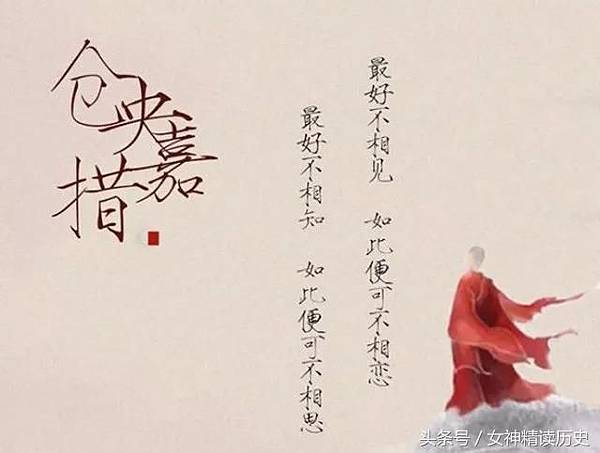 仓央嘉措
最好不相见 如此便可不相恋
最好不相知 如此便可不相思
头条号／女神精读历史